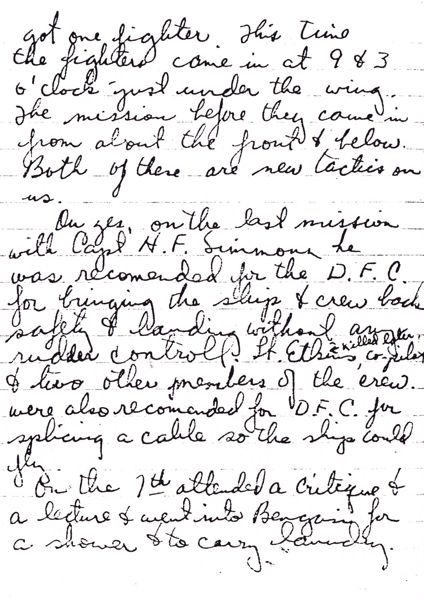 got one fighter. This time
the fighters come in at 9 & 3
o'clock just under the wing.
The mission before they came in
from about the front & below.
Both of these are new tactics on
us.
Ou yes, on the last mission
with Capt H. F. Simmons he
was recomended for the D.F.C.
for bringing the ship & crew back
safety & landing without any
rudder controll. Lt. Etkins, killed later, co-pilot
& two other members of the crew.
were also recomanded for D.F.C. for
splicing a cable so the ship could
fly.
On the 7th attended a critique &
a lecture & went into Bengasi for
a shower & to carry laundry.